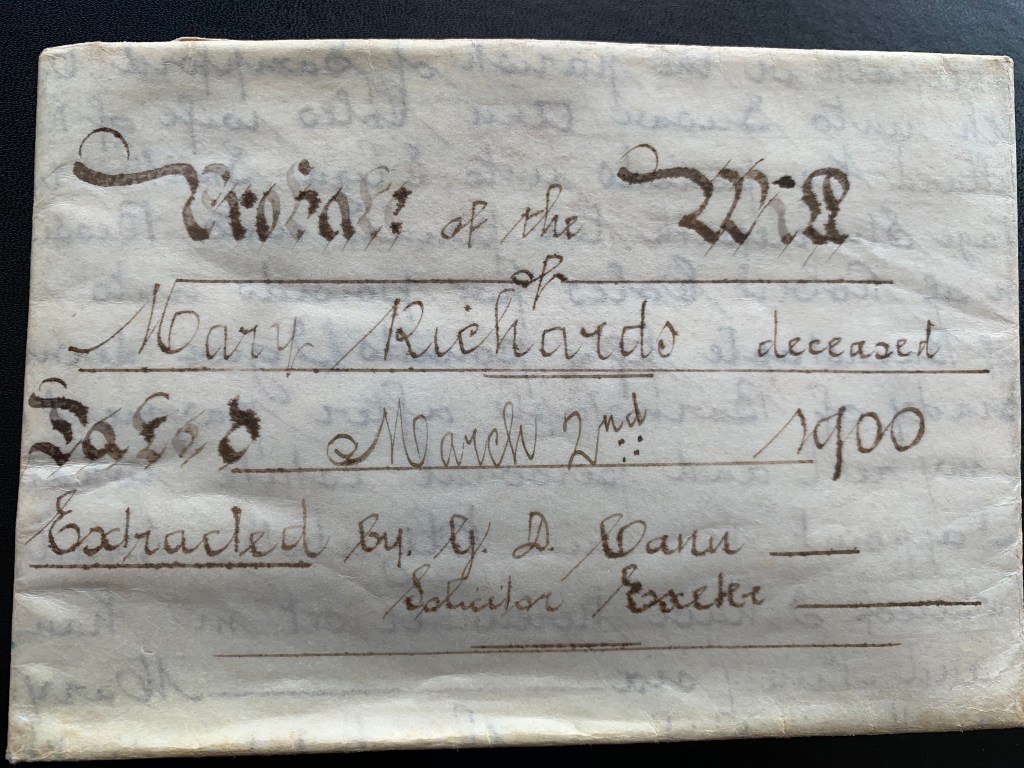 Probate of the Will
of
Mary Richards deceased
Dated March 2nd 1900
Extracted by G. D. Cann
Solicitor Exeter